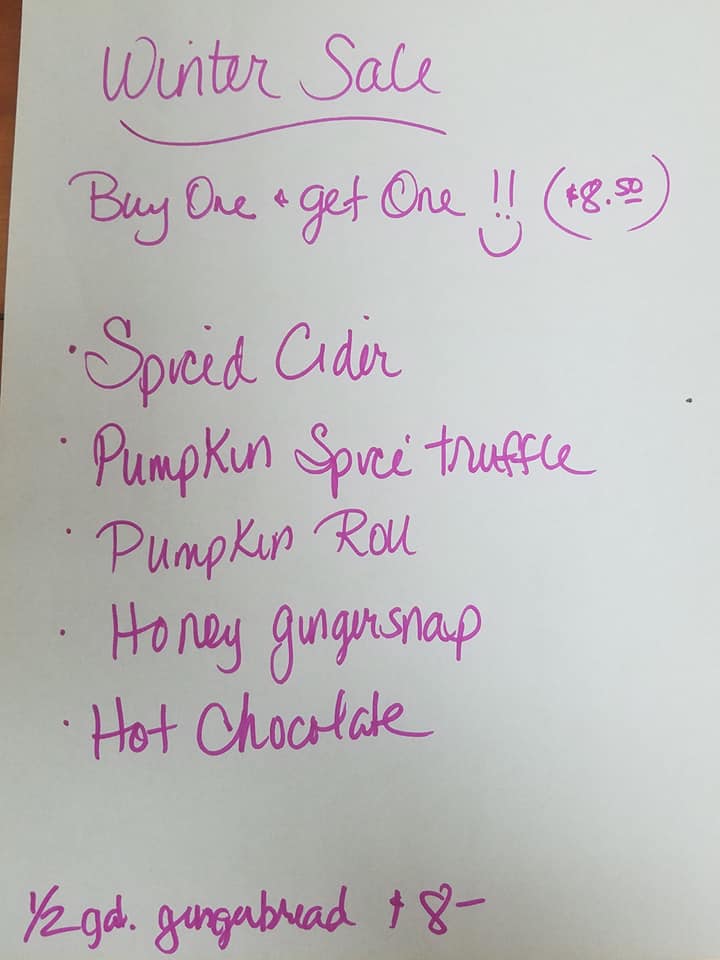 Winter Sale
Buy One & get One !! ($8.50)
· Spiced Cider
· Pumpkin Spice truffle
· Pumpkin Roll
· Honey gingersnap
· Hot Chocolate
1/2 gal. gingerbread $8-